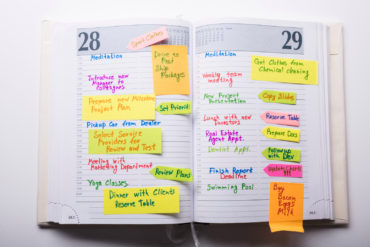 28
Meditation
Drive to
Post
Ship
Packages
Introduce new
Manager to
Colleagues
Promise new Milestone
Project Plan
Set Priorit
Pickup Car from Dealer
Select Service
Providers for
Review and Test
Meeting with
Marketing Department
Review Plans
Yoga Classes
Dinner with Clients
Reserve Table
29
Meditation
Get Clothes from
Chemical cleaning
Weekly team
meeting
New Project
Presentation
Copy Slides
Lunch with new
Investors
Reserve Table
Real Estate
Agent Appt.
Prepare Docs
Dentist Appt.
Followup
with Dev
Finish Report
Deadline
Update Charts
!!!
Swimming Pool
Buy
Bacon
Eggs
Milk